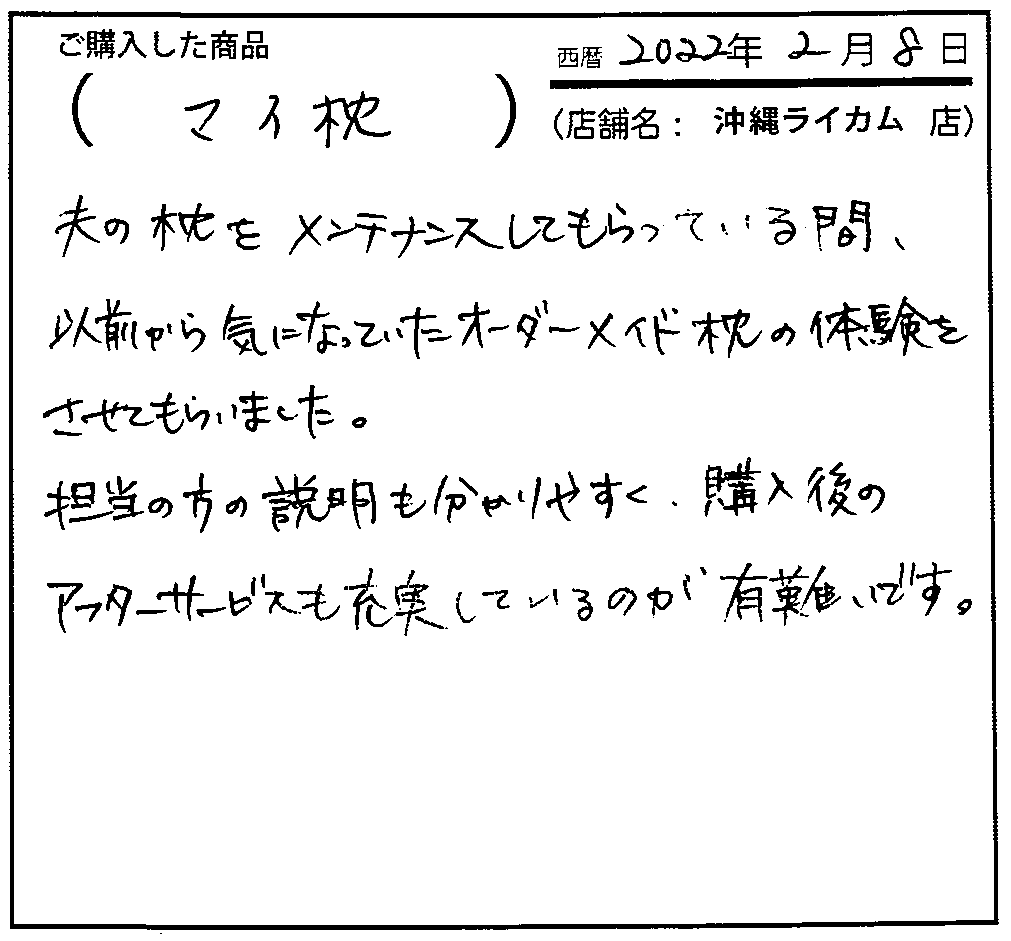 ご購入した商品
西暦 2022年 2月 8日
( マイ枕 )
(店舗名: 沖縄ライカム 店)
夫の枕をメンテナンスしてもらっている間、
以前から気になっていたオーダーメイド枕の体験を
させてもらいました。
担当の方の説明も分かりやすく、購入後の
アフターサービスも充実しているのが有難いです。